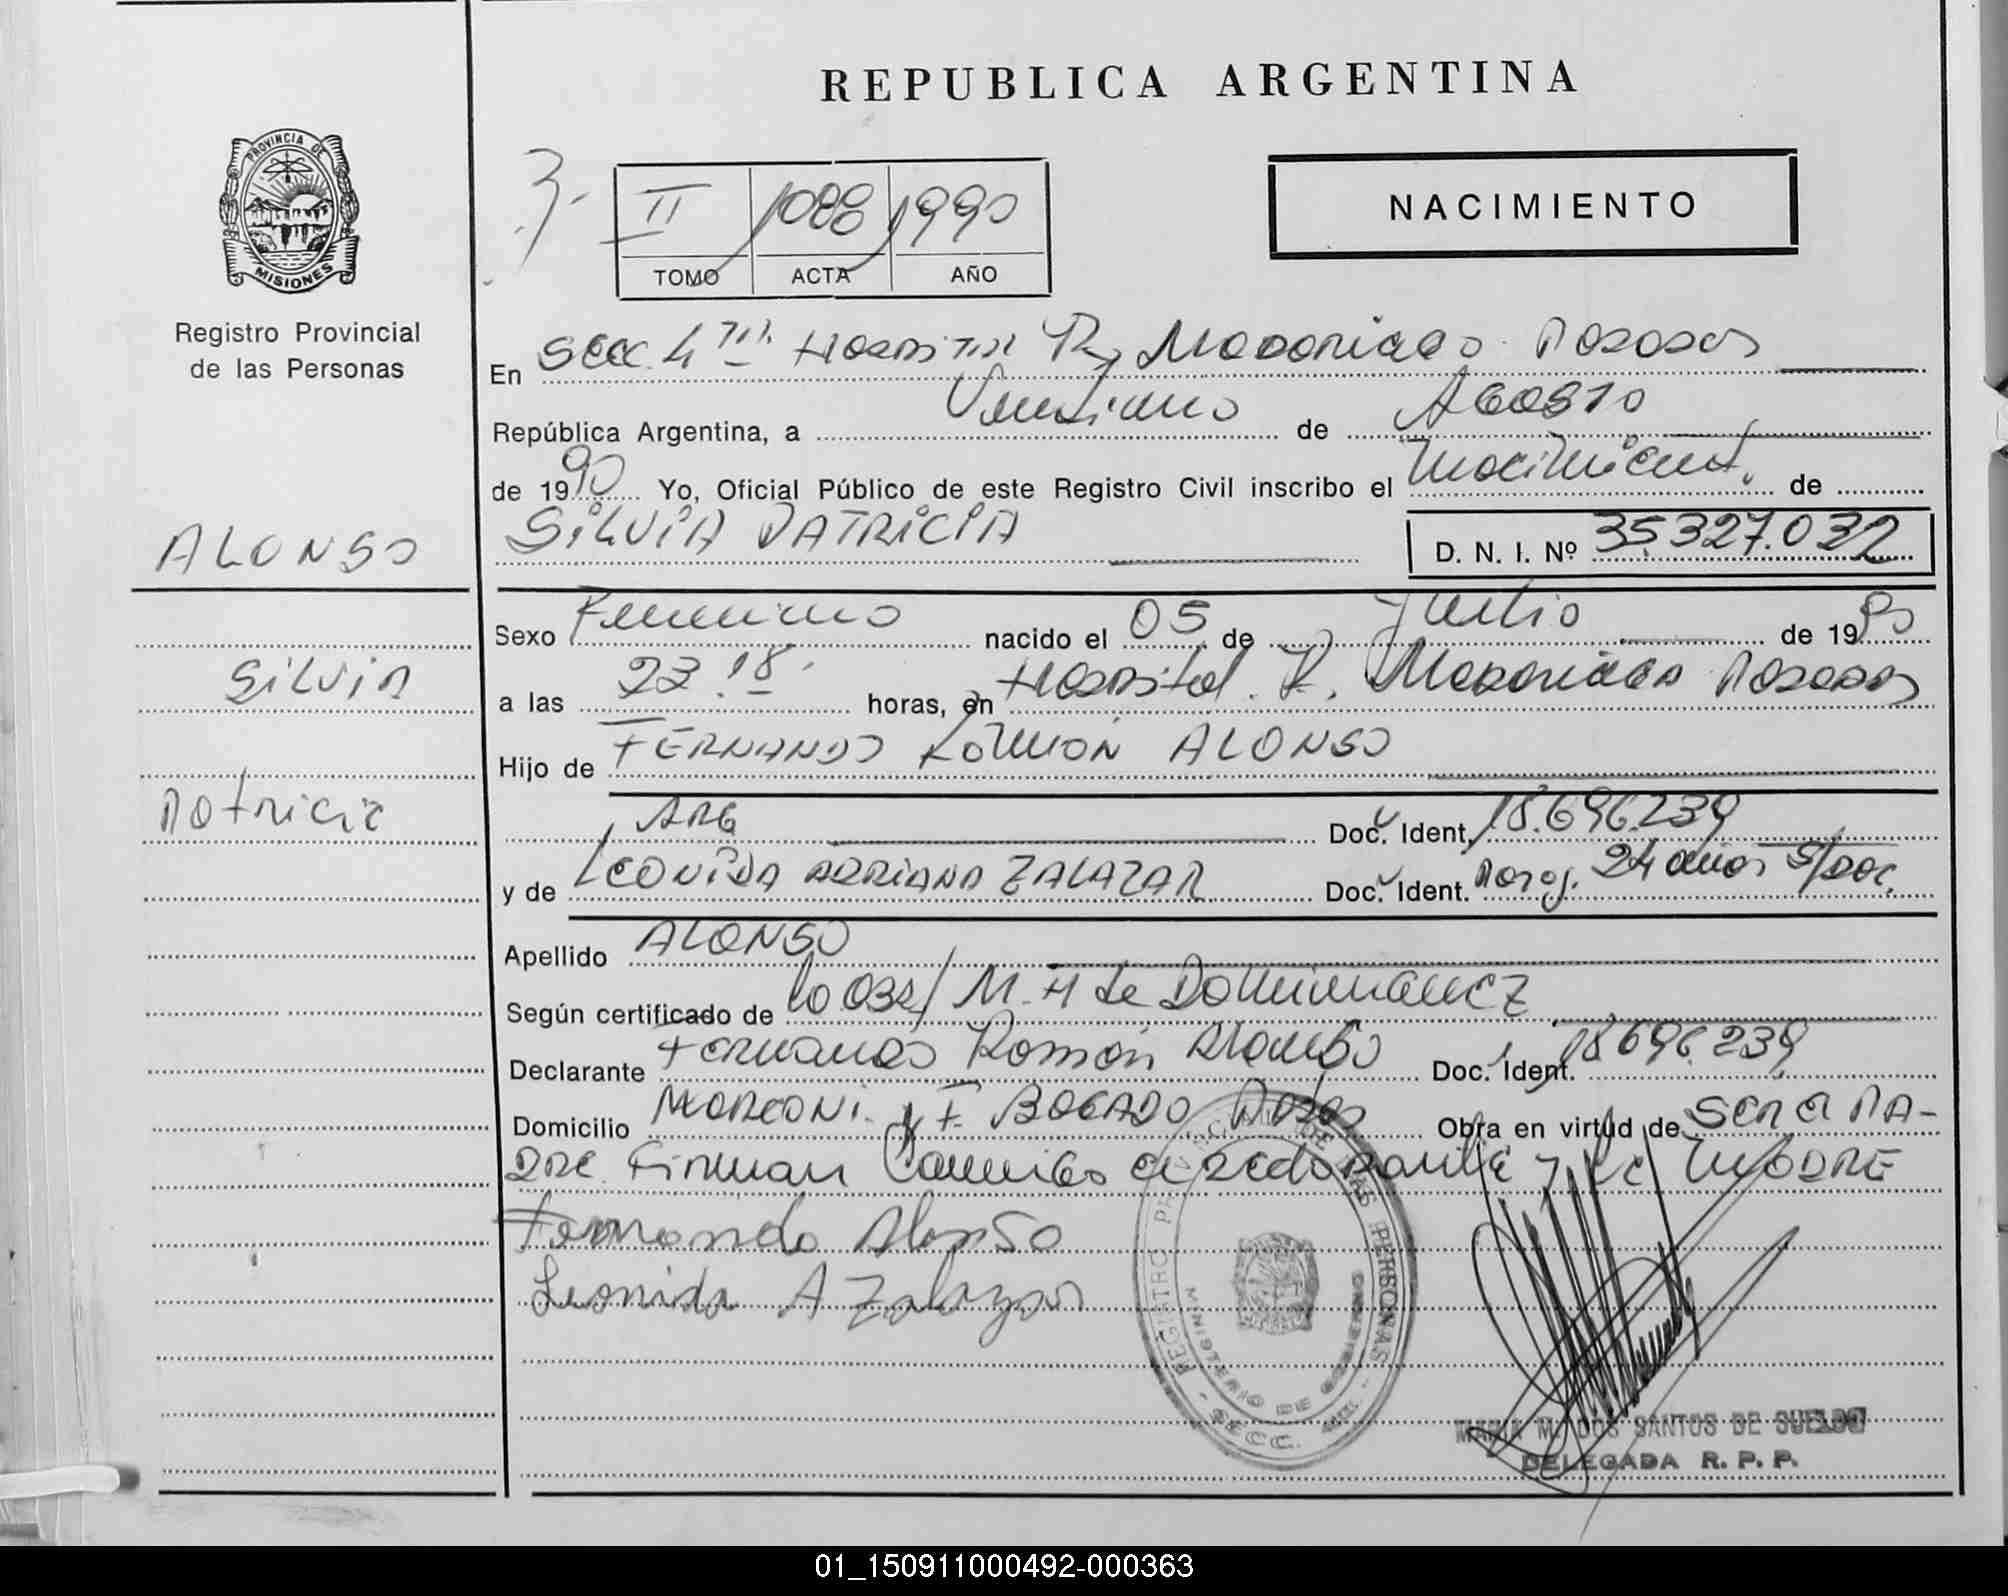 REPUBLICA ARGENTINA
PROVINCIA DE
MISIONES
Registro Provincial
de las Personas
II 1088 1990
TOMO ACTA AÑO
NACIMIENTO
En Secc. 4ta Hospital R. Madariaga Posadas
República Argentina, a Veintiuno de Agosto
de 1990 Yo, Oficial Público de este Registro Civil inscribo el Nacimient. de
SILVIA PATRICIA D. N. I. Nº 35.327.032
ALONSO
Silvia
Patricia
Sexo Femenino nacido el 05 de Julio de 1990
a las 23.18 horas, en Hospital R. Madariaga Posadas
Hijo de FERNANDO Ramón ALONSO
ARG Doc. Ident. 18.696.239
y de LEONIDA ADRIANA ZALAZAR Doc. Ident. Parag. 24 años S/Doc.
Apellido ALONSO
Según certificado de la Obst/ M. H de
Declarante Fernando Ramón Alonso Doc. Ident. 18.696.239
Domicilio MARCONI y F. BOGADO Posadas Obra en virtud de Ser el PA-
DRE Firman Conmigo el Declarante y la MADRE
Fernando Alonso
Leonida A Zalazar
REGISTRO PROVINCIAL DE LAS PERSONAS
MINISTERIO DE GOBIERNO
SECC. 4ta.
MARIA M. DOS SANTOS DE SUELDO
DELEGADA R. P. P.
01_150911000492-000363